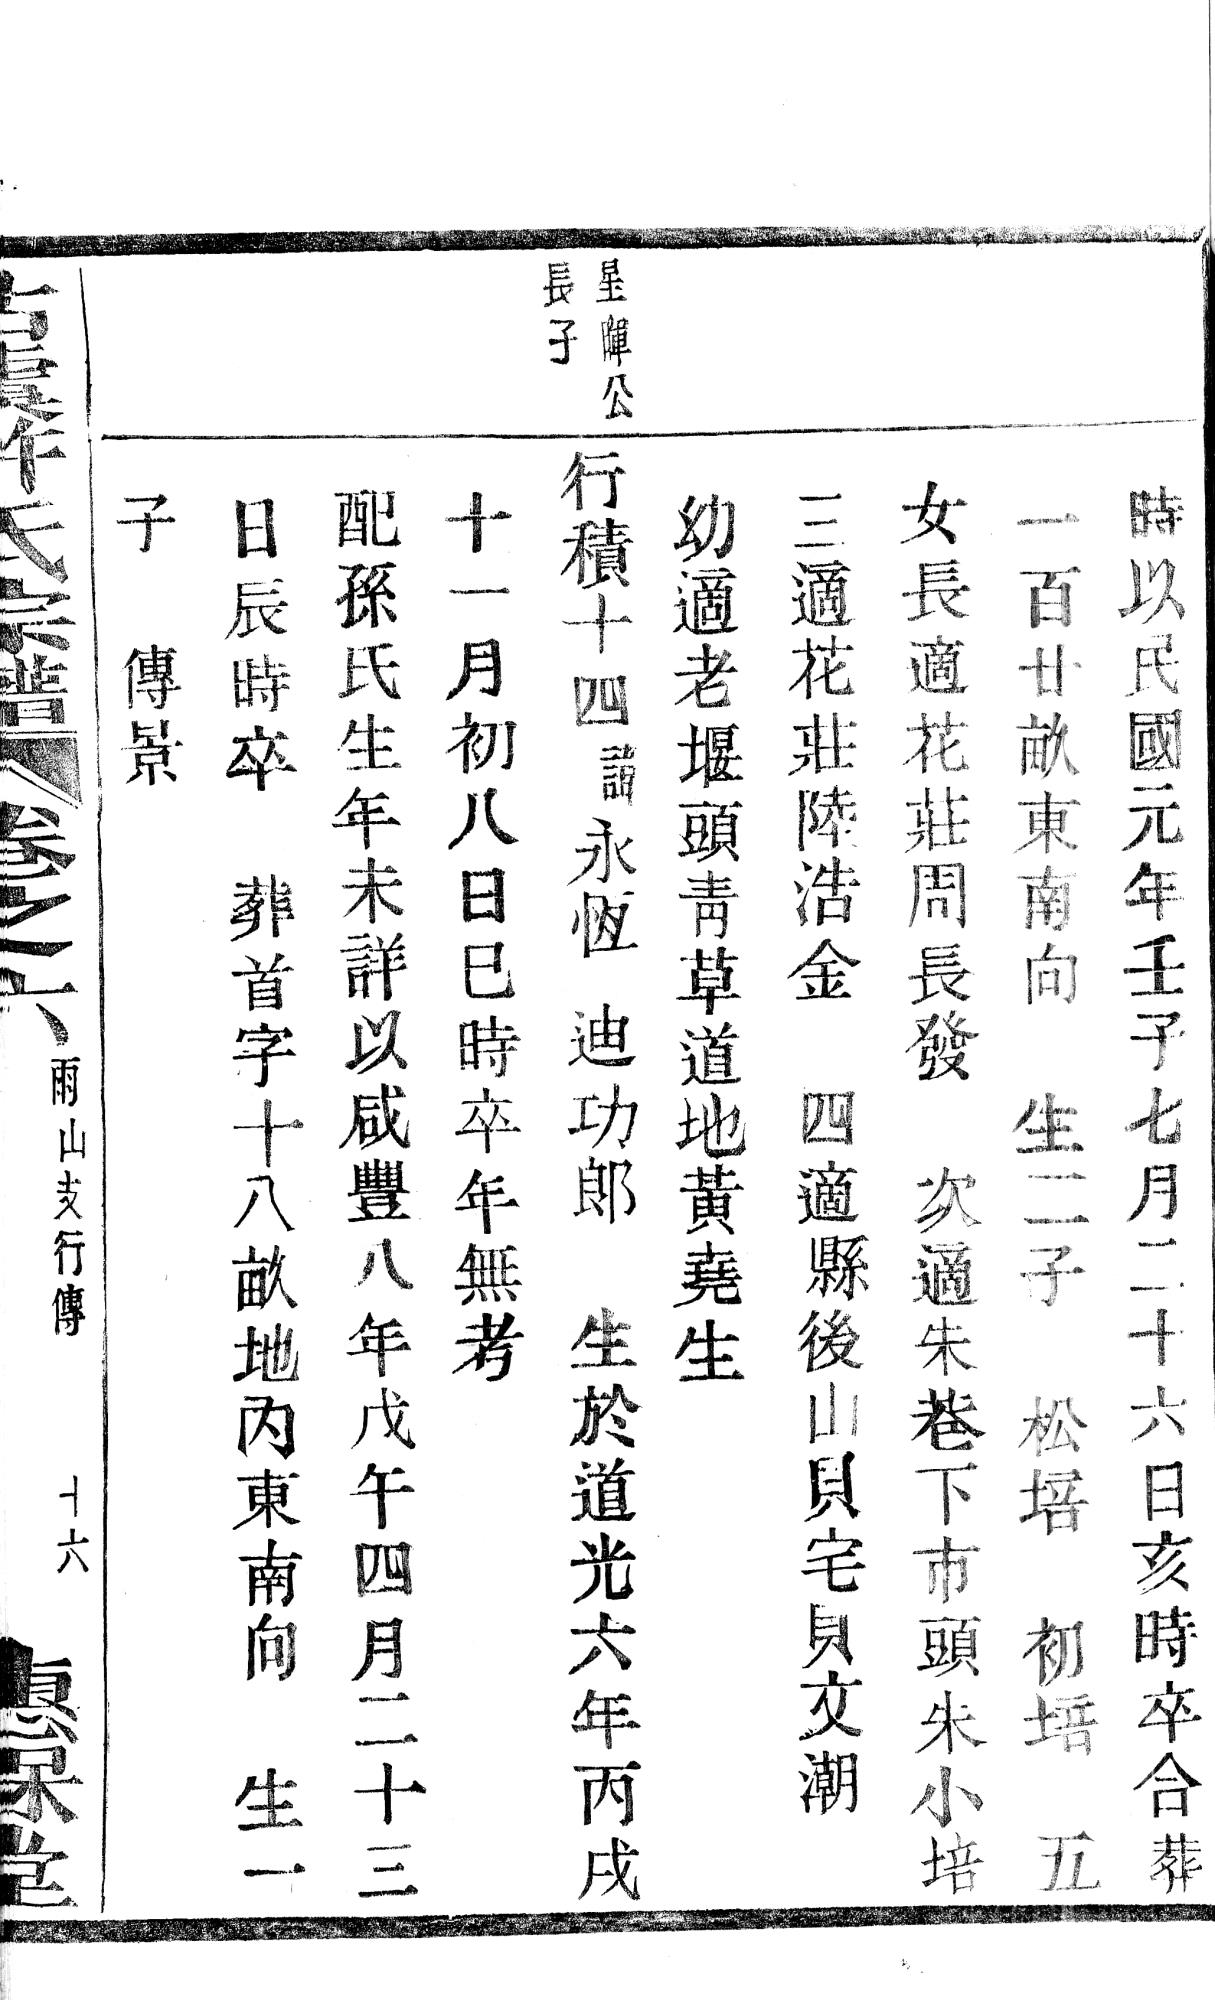 時以民國元年壬子七月二十六日亥時卒合葬
一百廿畝東南向　生二子　松培　初培　五
女長適花莊周長發　次適朱巷下市頭朱小培
三適花莊陸浩金　四適縣後山貝宅貝文潮
幼適老堰頭青草道地黃堯生
星暉公
長子
行積十四諱永恆　迪功郎　生於道光六年丙戌
十一月初八日巳時卒年無考
配孫氏生年未詳以咸豐八年戊午四月二十三
日辰時卒　葬首字十八畝地內東南向　生一
子　傳景
古虞許氏宗譜　卷之六　雨山支行傳　十六　惠保堂